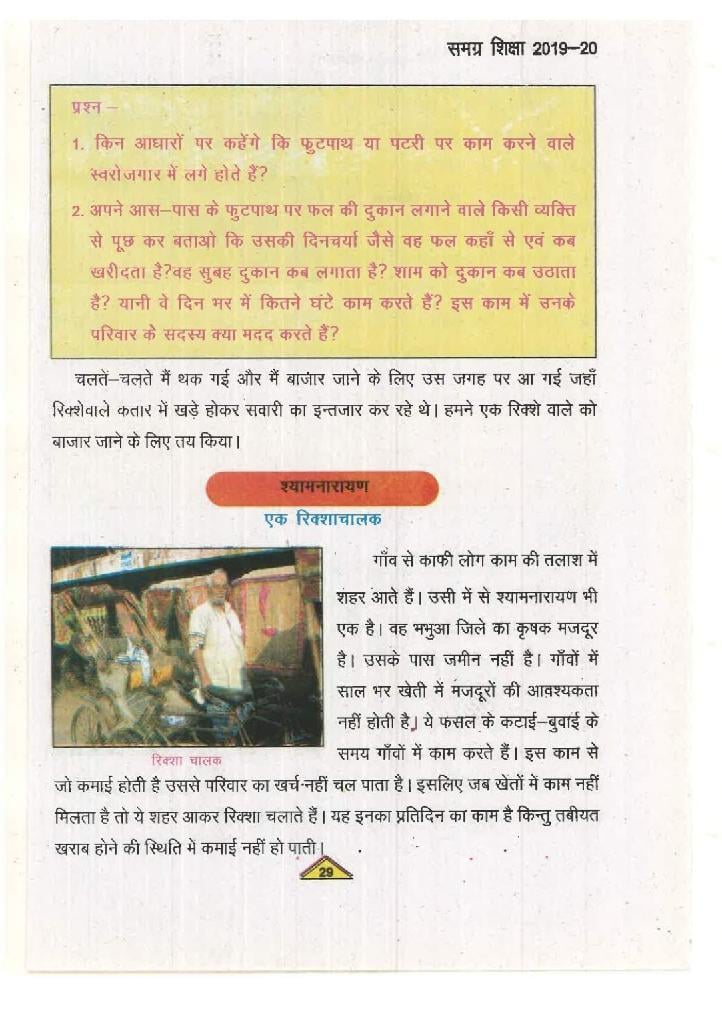 समग्र शिक्षा 2019–20
प्रश्न –
1. किन आधारों पर कहेंगे कि फुटपाथ या पटरी पर काम करने वाले
स्वरोजगार में लगे होते हैं?
2. अपने आस–पास के फुटपाथ पर फल की दुकान लगाने वाले किसी व्यक्ति
से पूछ कर बताओ कि उसकी दिनचर्या जैसे वह फल कहाँ से एवं कब
खरीदता है?वह सुबह दुकान कब लगाता है? शाम को दुकान कब उठाता
है? यानी वे दिन भर में कितने घंटे काम करते हैं? इस काम में उनके
परिवार के सदस्य क्या मदद करते हैं?
चलतें–चलते मैं थक गई और मैं बाजार जाने के लिए उस जगह पर आ गई जहाँ
रिक्शेवाले कतार में खड़े होकर सवारी का इन्तजार कर रहे थे। हमने एक रिक्शे वाले को
बाजार जाने के लिए तय किया।
श्यामनारायण
एक रिक्शाचालक
गाँव से काफी लोग काम की तलाश में
शहर आते हैं। उसी में से श्यामनारायण भी
एक है। वह भभुआ जिले का कृषक मजदूर
है। उसके पास जमीन नहीं है। गाँवों में
साल भर खेती में मजदूरों की आवश्यकता
नहीं होती है। ये फसल के कटाई–बुवाई के
समय गाँवों में काम करते हैं। इस काम से
रिक्शा चालक
जो कमाई होती है उससे परिवार का खर्च नहीं चल पाता है। इसलिए जब खेतों में काम नहीं
मिलता है तो ये शहर आकर रिक्शा चलाते हैं। यह इनका प्रतिदिन का काम है किन्तु तबीयत
खराब होने की स्थिति में कमाई नहीं हो पाती।
29